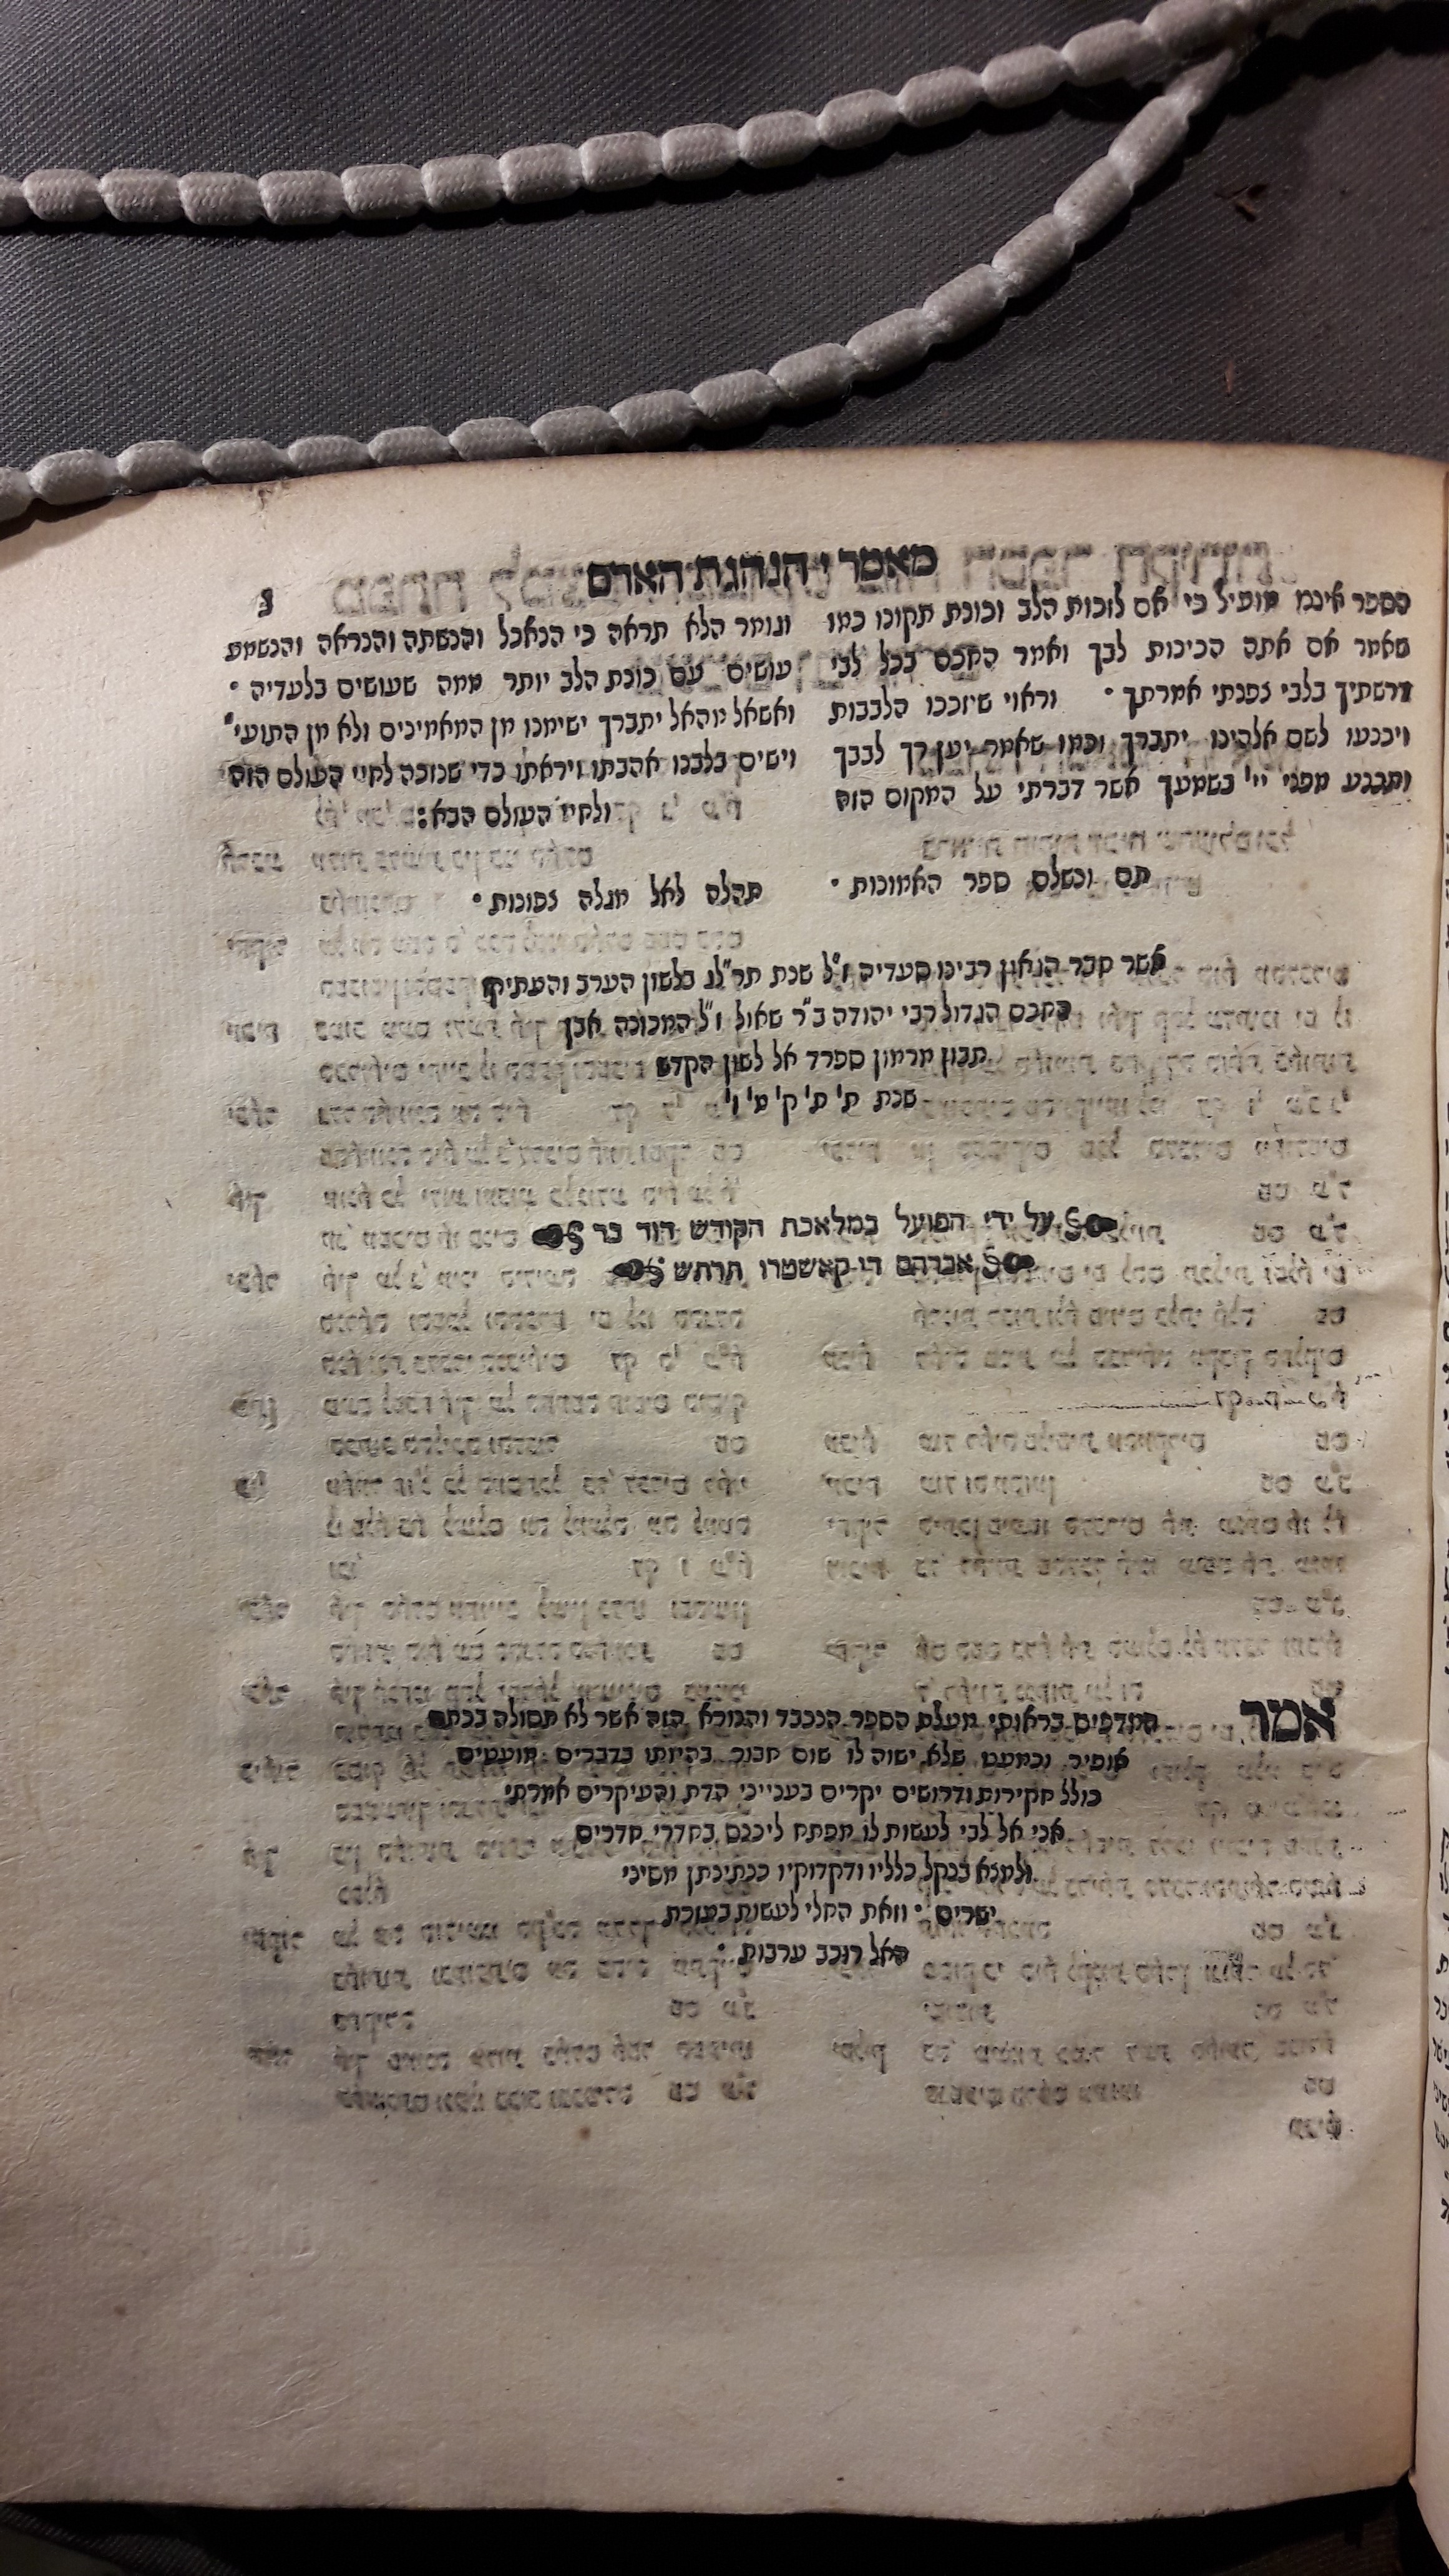 מאמר י הנהגת האדם
הספר איננו מועיל כי אם לזכות הלב וכונת תקונו כמו
שאמר אם אתה הכינות לבך ואמר החכם בכל לבי
דרשתיך בלבי צפנתי אמרתך · וראוי שיזככו הלבבות
ויכנעו לשם אלהינו יתברך וכמו שאמר יען רך לבבך
ותכנע מפני ײ בשמעך אשר דברתי על המקום הזה
ונומר הלא תראה כי הנאכל והנשתה והנראה והנשמע
עושים עם כונת הלב יותר ממה שעושים בלעדיה ·
ואשאל מהאל יתברך ישימנו מן המאמינים ולא מן התועי'
וישים בלבנו אהבתו ויראתו כדי שנזכה לחיי העולם הזה
ולחיי העולם הבא :
תם ונשלם ספר האמונות ·
תהלה לאל מגלה צפונות ·
אשר חבר הגאון רבינו סעדיה ז"ל שנת תר"לג בלשון הערב והעתיקו
החכם הגדול רבי יהודה ב"ר שאול ז"ל המכונה אבן
תבון מרמון ספרד אל לשון הקדש
שנת ת' ת' ק' מ' ו'
על ידי הפועל במלאכת הקודש דוד בר
אברהם די קאשטרו תרתש
אמר המדפיס בראותי מעלת הספר הנכבד והנורא הזה אשר לא תסולה בכתם
אופיר וכמעט שלא ישוה לו שום חבור בהיותו בדברים מועטים
כולל חקירות ודרושים יקרים בענייני הדת והעיקרים אמרתי
אני אל לבי לעשות לו מפתח ליכנס בחדרי חדרים
ולמצא בנקל כלליו ודקדוקיו בנתיבתן משיני
ישרים · וזאת החלי לעשות בעזרת
האל רוכב ערבות ·